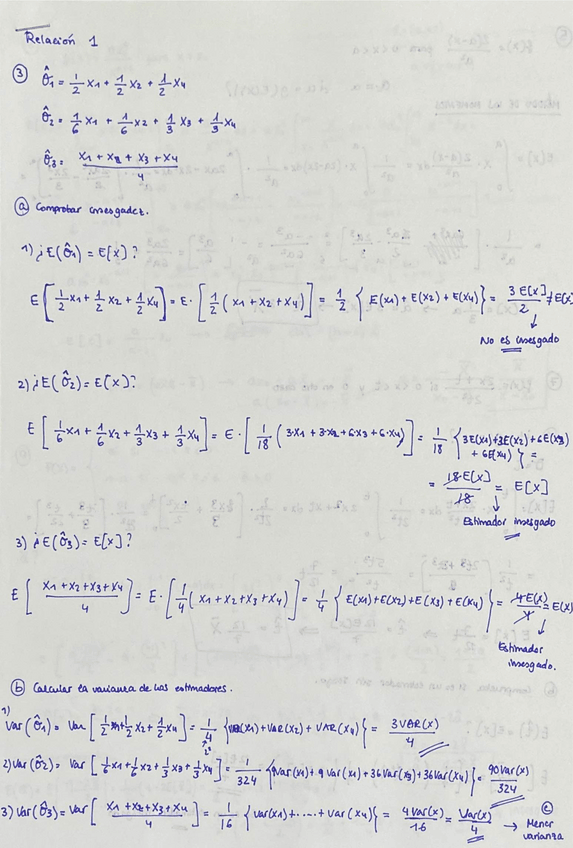 Relación 1
③ θ̂1 = 1/2 x1 + 1/2 x2 + 1/2 x4
θ̂2 = 1/6 x1 + 1/6 x2 + 1/3 x3 + 1/3 x4
θ̂3 = (x1 + x2 + x3 + x4)/4
ⓐ Comprobar insesgadez.
1) ¿E(θ̂1) = E[x]?
E[1/2 x1 + 1/2 x2 + 1/2 x4] = E·[1/2 (x1 + x2 + x4)] = 1/2 · {E(x1) + E(x2) + E(x4)} = 3E[x]/2 ≠ E[x]
↓
No es insesgado
2) ¿E(θ̂2) = E[x]?
E[1/6 x1 + 1/6 x2 + 1/3 x3 + 1/3 x4] = E·[1/18 · (3·x1 + 3·x2 + 6·x3 + 6·x4)] = 1/18 {3E(x1) + 3E(x2) + 6E(x3)
+ 6E(x4)} =
= 18·E[x]/18 = E[x]
Estimador insesgado
3) ¿E(θ̂3) = E[x]?
E[(x1 + x2 + x3 + x4)/4] = E·[1/4 (x1 + x2 + x3 + x4)] = 1/4 {E(x1) + E(x2) + E(x3) + E(x4)} = 4E(x)/4 = E(x)
↓
Estimador
insesgado.
ⓑ Calcular la varianza de los estimadores.
1) Var(θ̂1) = Var[1/2 x1 + 1/2 x2 + 1/2 x4] = 1/4 {VAR(x1) + VAR(x2) + VAR(x4)} = 3VAR(x)/4
2²
2) Var(θ̂2) = Var[1/6 x1 + 1/6 x2 + 1/3 x3 + 1/3 x4] = 1/324 {9Var(x1) + 9Var(x2) + 36Var(x3) + 36Var(x4)} = 90Var(x)/324
3) Var(θ̂3) = Var[(x1 + x2 + x3 + x4)/4] = 1/16 {Var(x1) + .... + Var(x4)} = 4Var(x)/16 = Var(x)/4 → ⓒ Menor
varianza